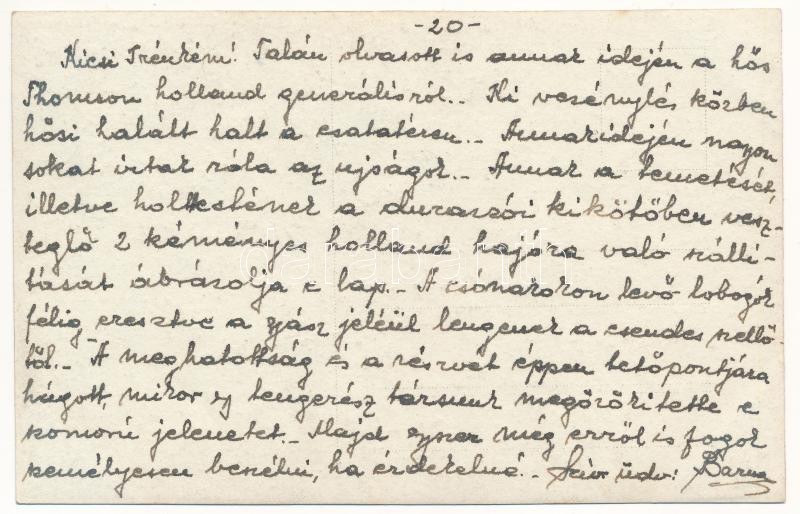 -20-
Kicsi Trénkém! Talán olvasott is annak idején a hős
Thomson holland generálisról.. Ki vesénylés közben
hősi halált halt a csatatéren.- Annakidején nagyon
sokat irtak róla az ujságok.- Annak a temetését
illetve holttestének a duraszói kikötőben vesz-
teglő 2 kéményes holland hajóra való szálli-
tását ábrázolja e lap.- A csónakokon levő lobogók
félig eresztve a gyász jeléül lengenek a csendes szellő-
től.- A meghatottság és a részvét éppen tetőpontjára
hágott, mikor egy tengerész társunk megörökitette e
komorú jelenetet.- Majd egyszer még erről is fogok
személyesen beszélni, ha érdekelné.- Sziv. üdv: Barna
darabanth